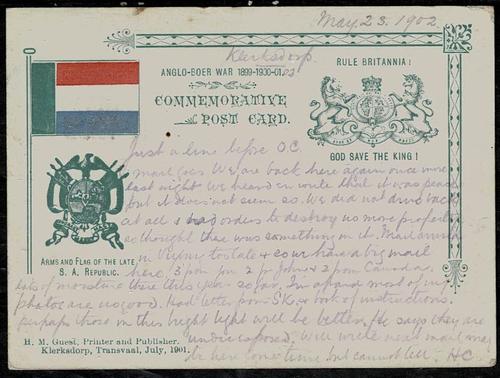 May 23. 1902
Klerksdorp.
RULE BRITANNIA!
ANGLO-BOER WAR 1899-1900-01.02
COMMEMORATIVE
POST CARD.
GOD SAVE THE KING!
Just a line before O.C.
mail goes. We are back here again once more
last night we heard en route that it was peace
but it does not seem so. We did not drive
at all & had orders to destroy no more property
so thought there was something in it. Mail
in & our have a big mail
here, 3 from you 2 fr John & 2 from Canada.
ARMS AND FLAG OF THE LATE
S. A. REPUBLIC.
lots of moisture here this year so far. Im afraid most of my
photos are no good. Had letter from S.K. & book of instructions.
perhaps those in this bright light will be better. He says they are
under exposed. Will write next mail may
be here some time but cannot tell. HC
H. M. Guest, Printer and Publisher.
Klerksdorp, Transvaal, July, 1901.